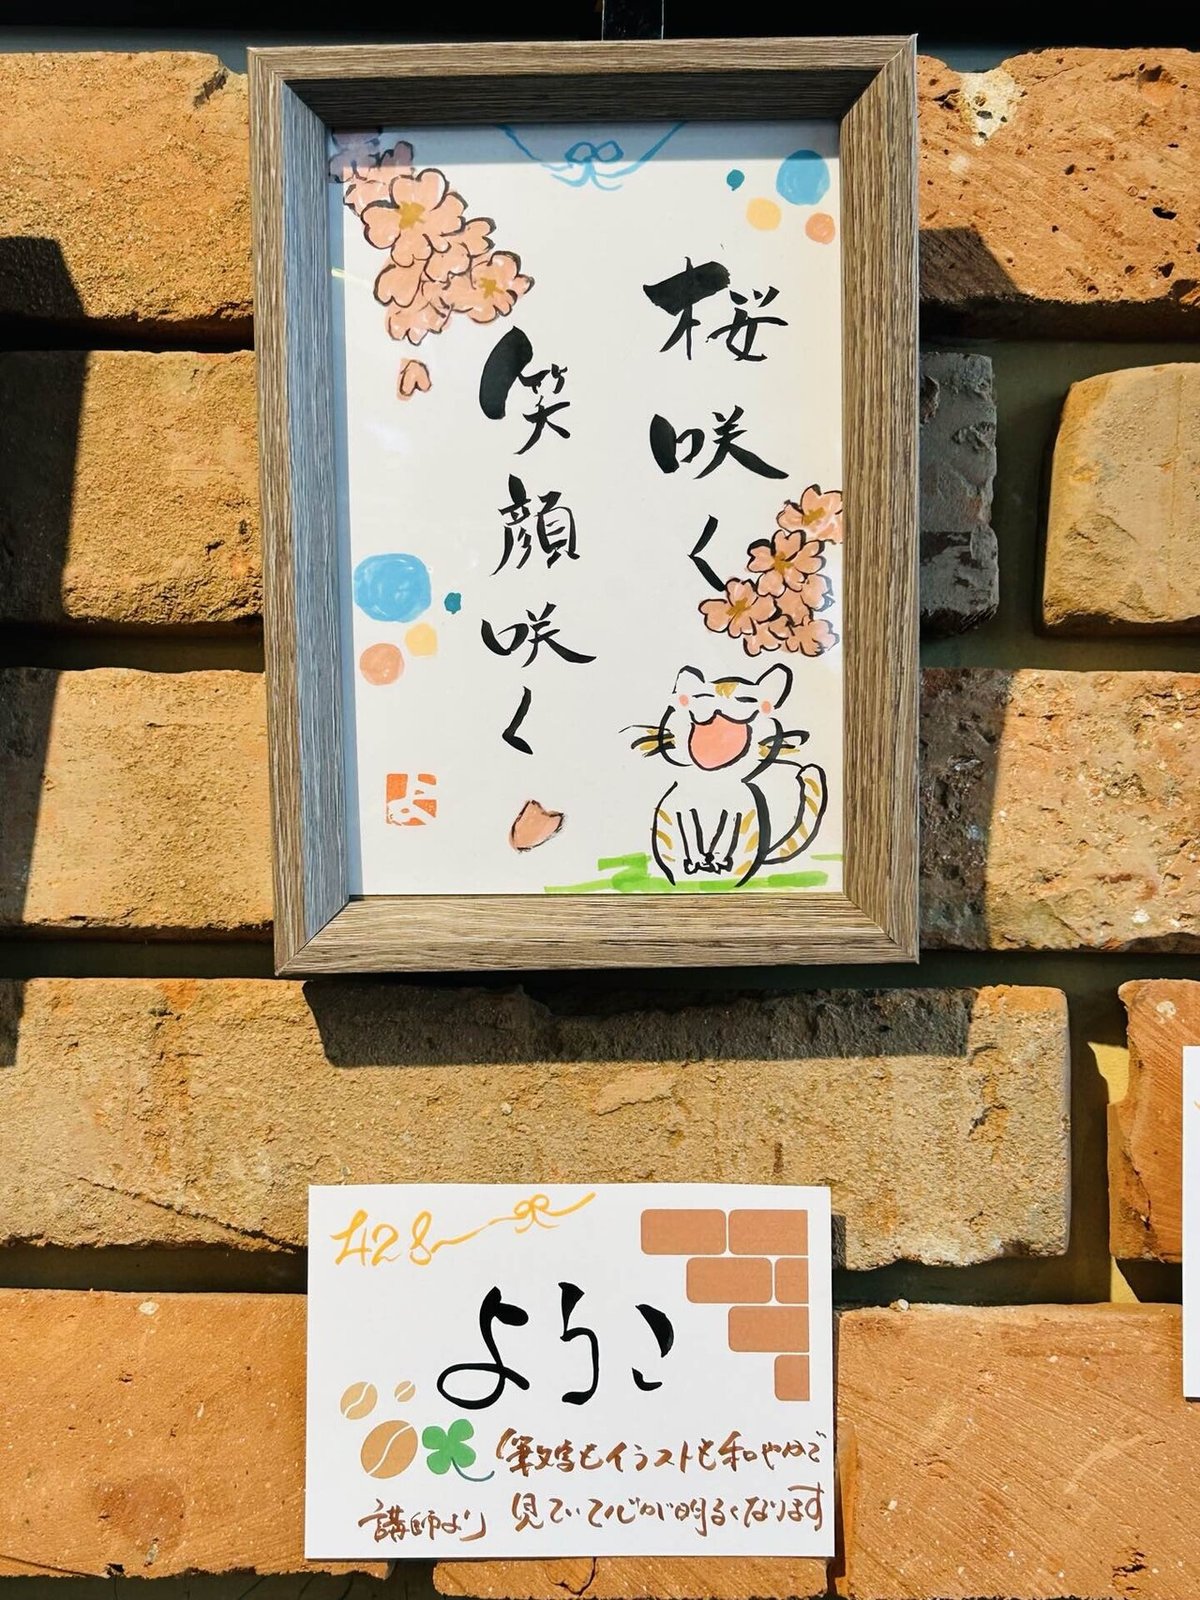 桜咲く
笑顔咲く
よ
428
ようこ
筆文字もイラストも和やかで
見ていて心が明るくなります
講師より